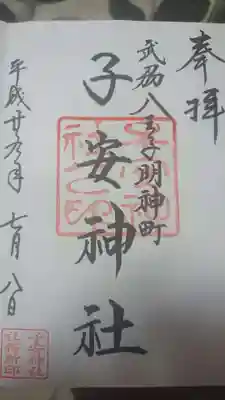 奉拝
武州八王子明神町
子安神社
平成廿九年 七月 八日